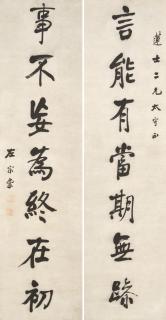 蓮士二兄大人正
言能有當期無躁
事不妄為終在初
左宗棠